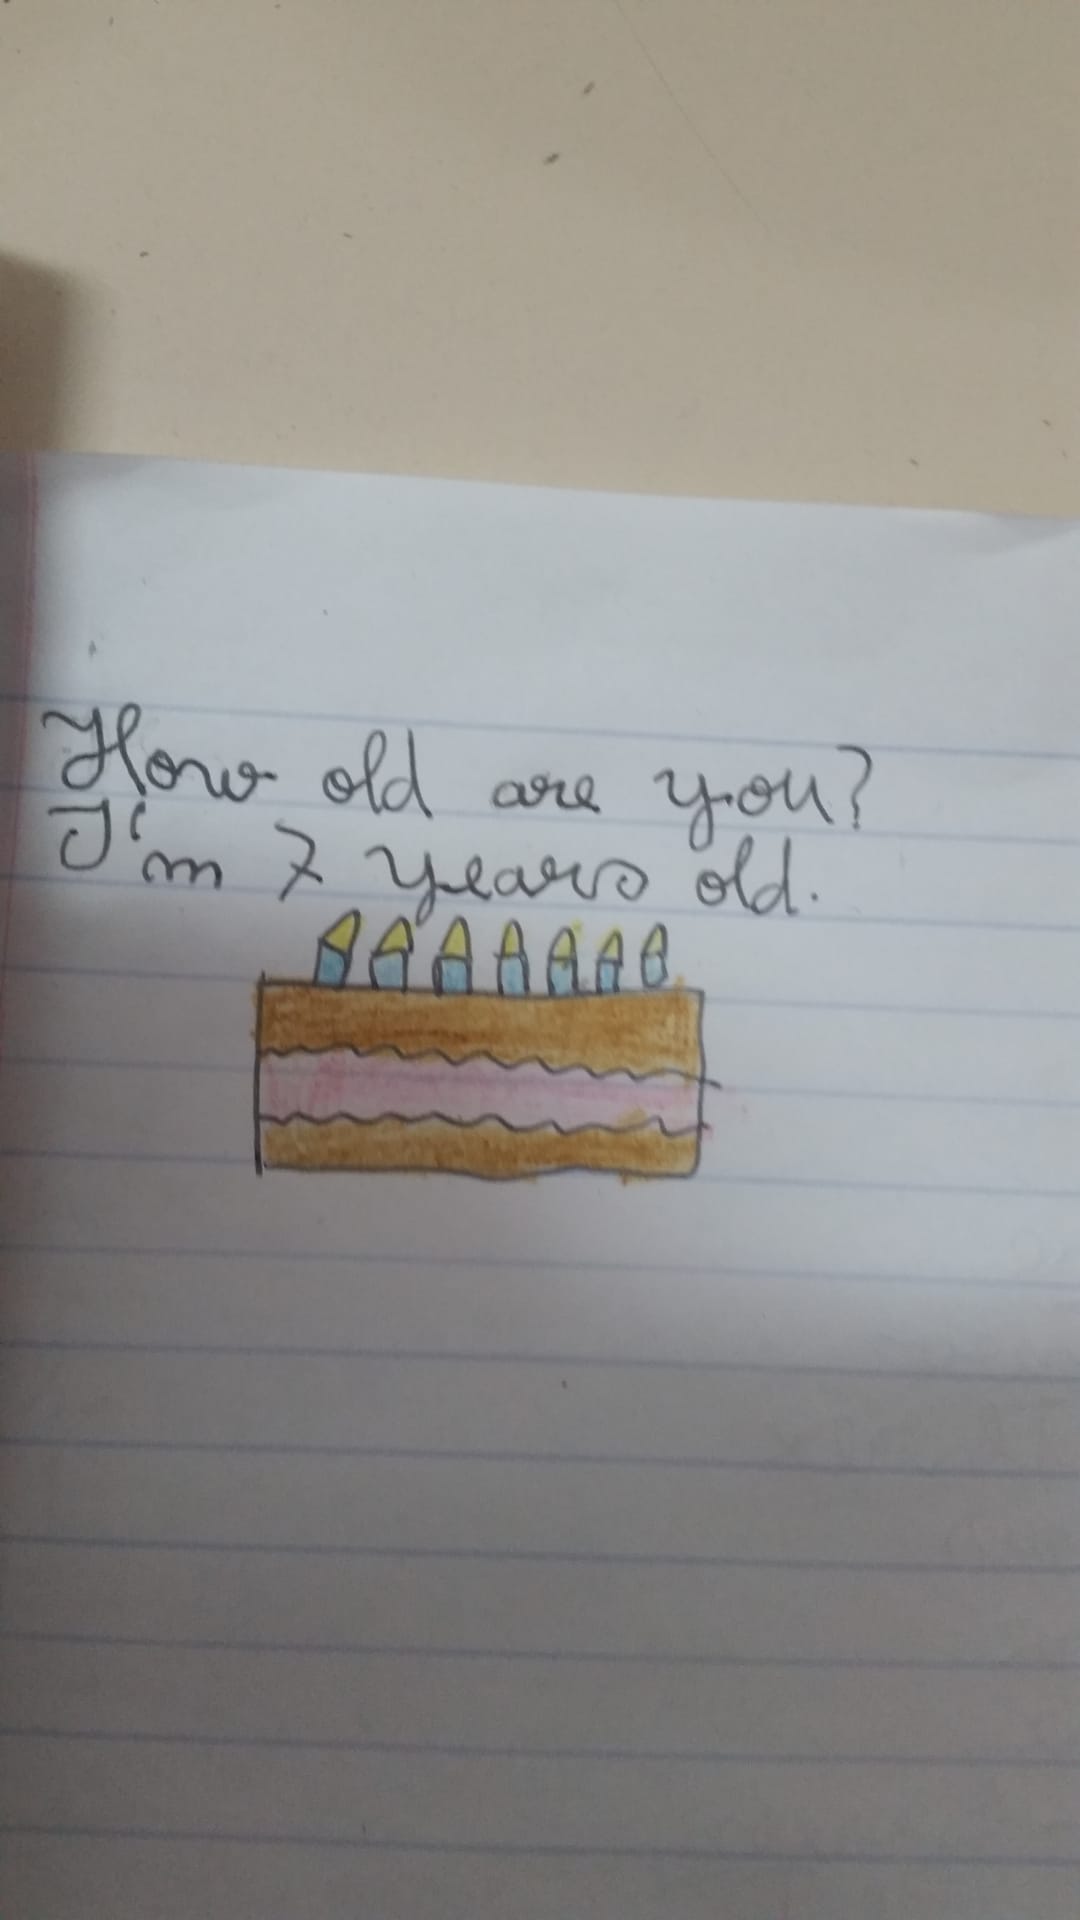 How old are you?
I'm 7 years old.